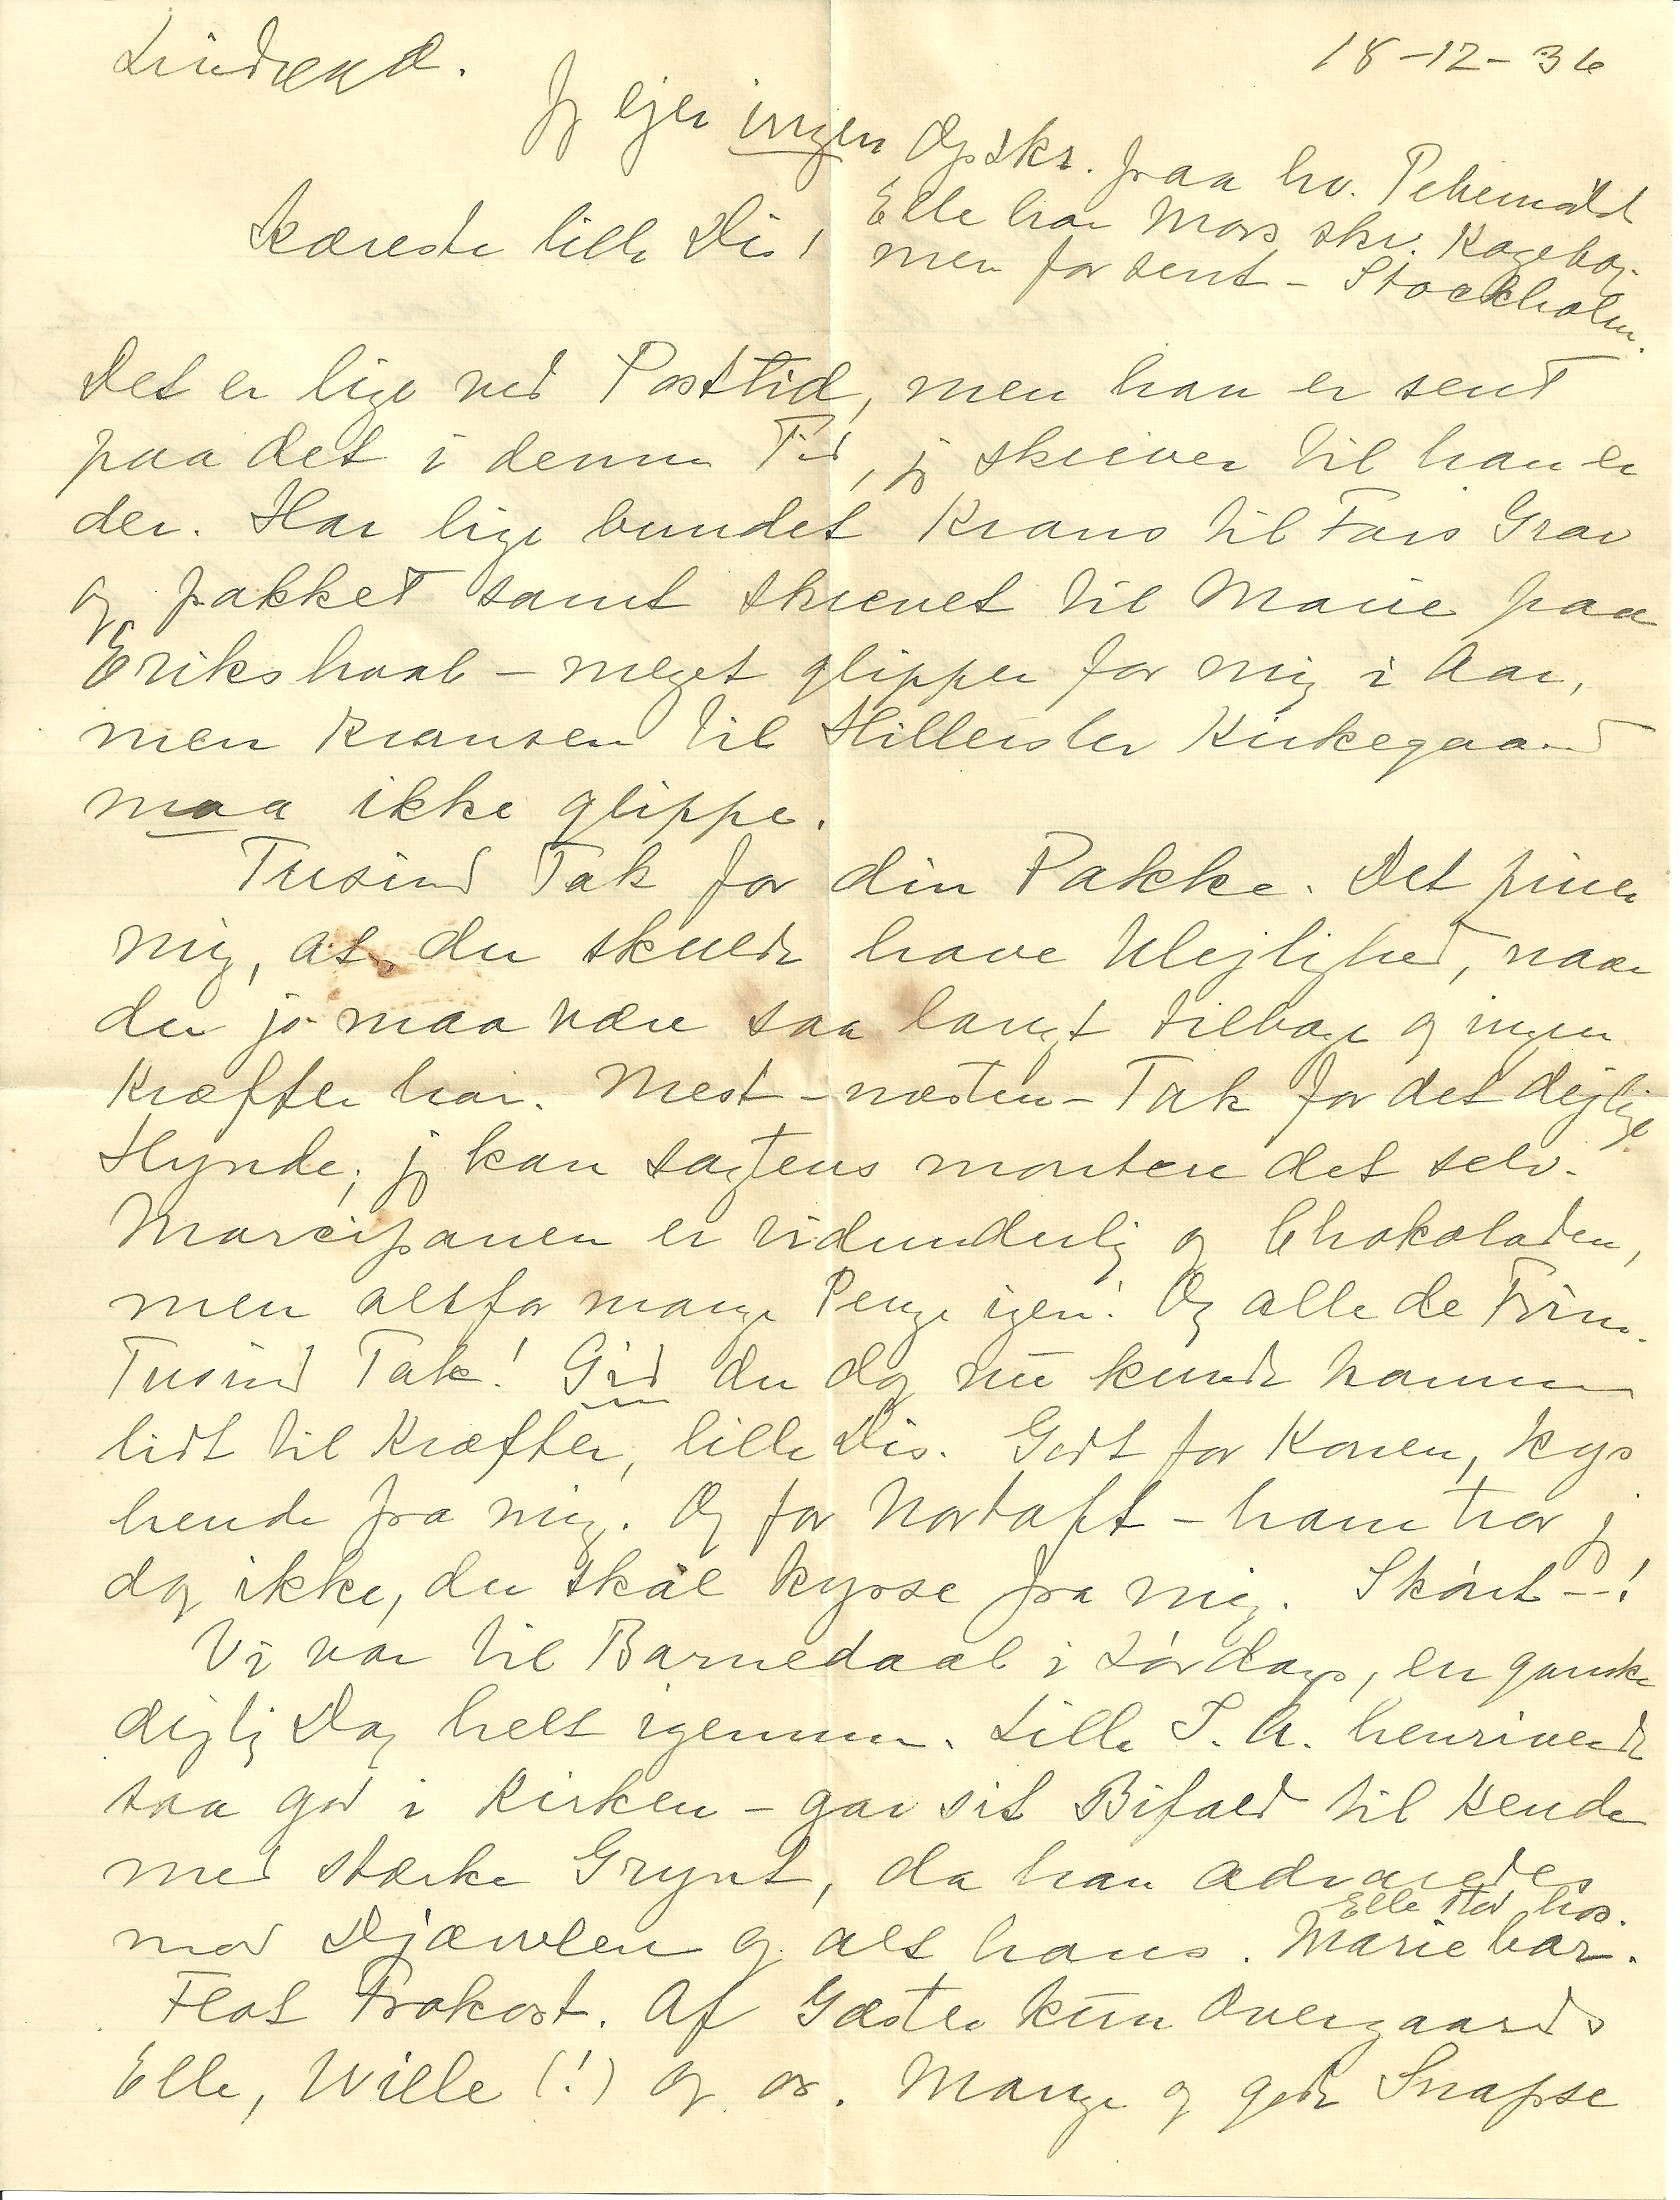 Lindøgd.
18-12-36
Jeg ejer ingen Opskr. fraa hv. Pebernødd
Elle har Mors skr. Kogebog.
men for sent - Stockholm.
Kæreste lille Dis!
Det er lige ved Posttid, men han er sent
paa det i denne Tid, jeg skriver til han er
der. Har lige bundet Krans til Fars Grav
og pakket samt skrevet til Marie paa
Erikshaab - meget glipper for mig i Aar,
men Kransen til Hillerslev Kirkegaard
maa ikke glippe.
Tusind Tak for din Pakke. Det piner
mig, at du skulde have Ulejlighed, naar
du jo maa være saa langt tilbage og ingen
Kræfter har. Mest - næsten - Tak for det dejlige
Hynde; jeg kan sagtens montere det selv.
Marcipanen er vidunderlig og Chokoladen,
men altfor mange Penge igen! Og alle de Frim.
Tusind Tak! Gid du dog nu kunde komme
lidt til Kræfter, lille Dis. Godt for Konen, kys
hende fra mig. Og for Nortoft - ham tror jeg
dog ikke, du skal kysse fra mig. Skønt --!
Vi var til Barnedaab i Lørdags, en ganske
dejlig Dag helt igennem. Lille J. A. henrivende
saa god i Kirken - gav sit Bifald til Kende
med stærke Grynt, da han advaredes
mod Djævelen og alt hans. Marie bar.
Elle stod hos.
Flot Frokost. Af Gæster kun Overgaards
Elle, Wille (!) og os. Mange og gode Snapse